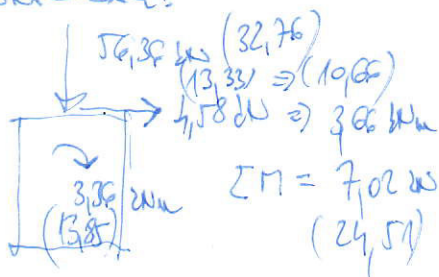 56,36 kN (32,76)
(13,33) => (10,66)
4,58 kN => 3,66 kNm
3,36 kNm
(13,85)
ΣM = 7,02 kN
(24,51)